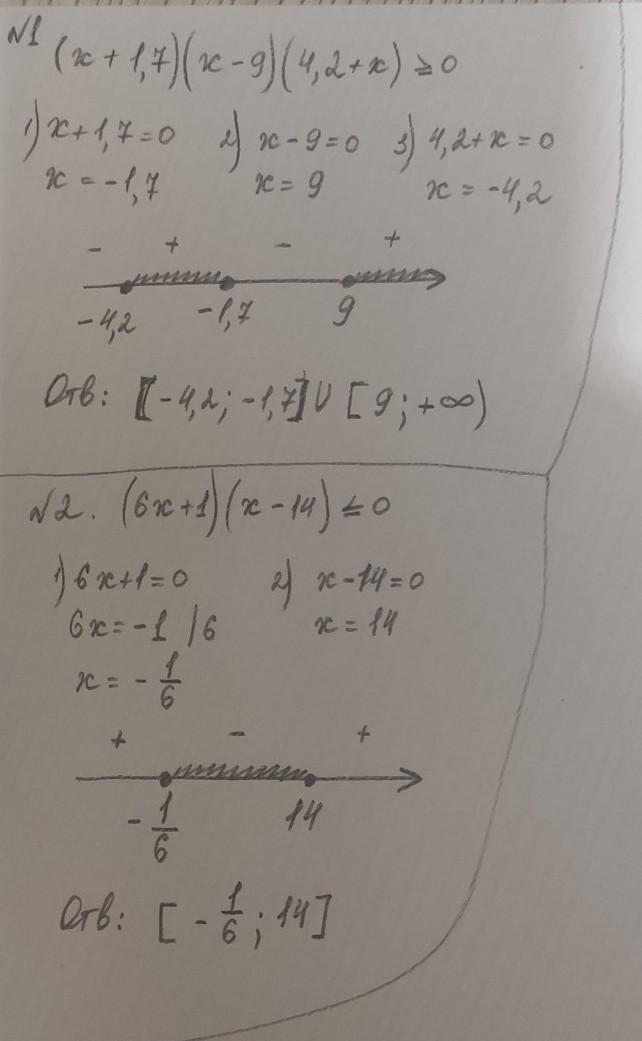 №1
(x+1,7)(x-9)(4,2+x) ≥ 0
1) x+1,7=0 2) x-9=0 3) 4,2+x=0
x=-1,7 x=9 x=-4,2
- + - +
-4,2 -1,7 9
Отв: [-4,2; -1,7] U [9; +∞)
№2. (6x+1)(x-14) ≤ 0
1) 6x+1=0 2) x-14=0
6x=-1 /6 x=14
x=-1/6
+ - +
-1/6 14
Отв: [-1/6; 14]